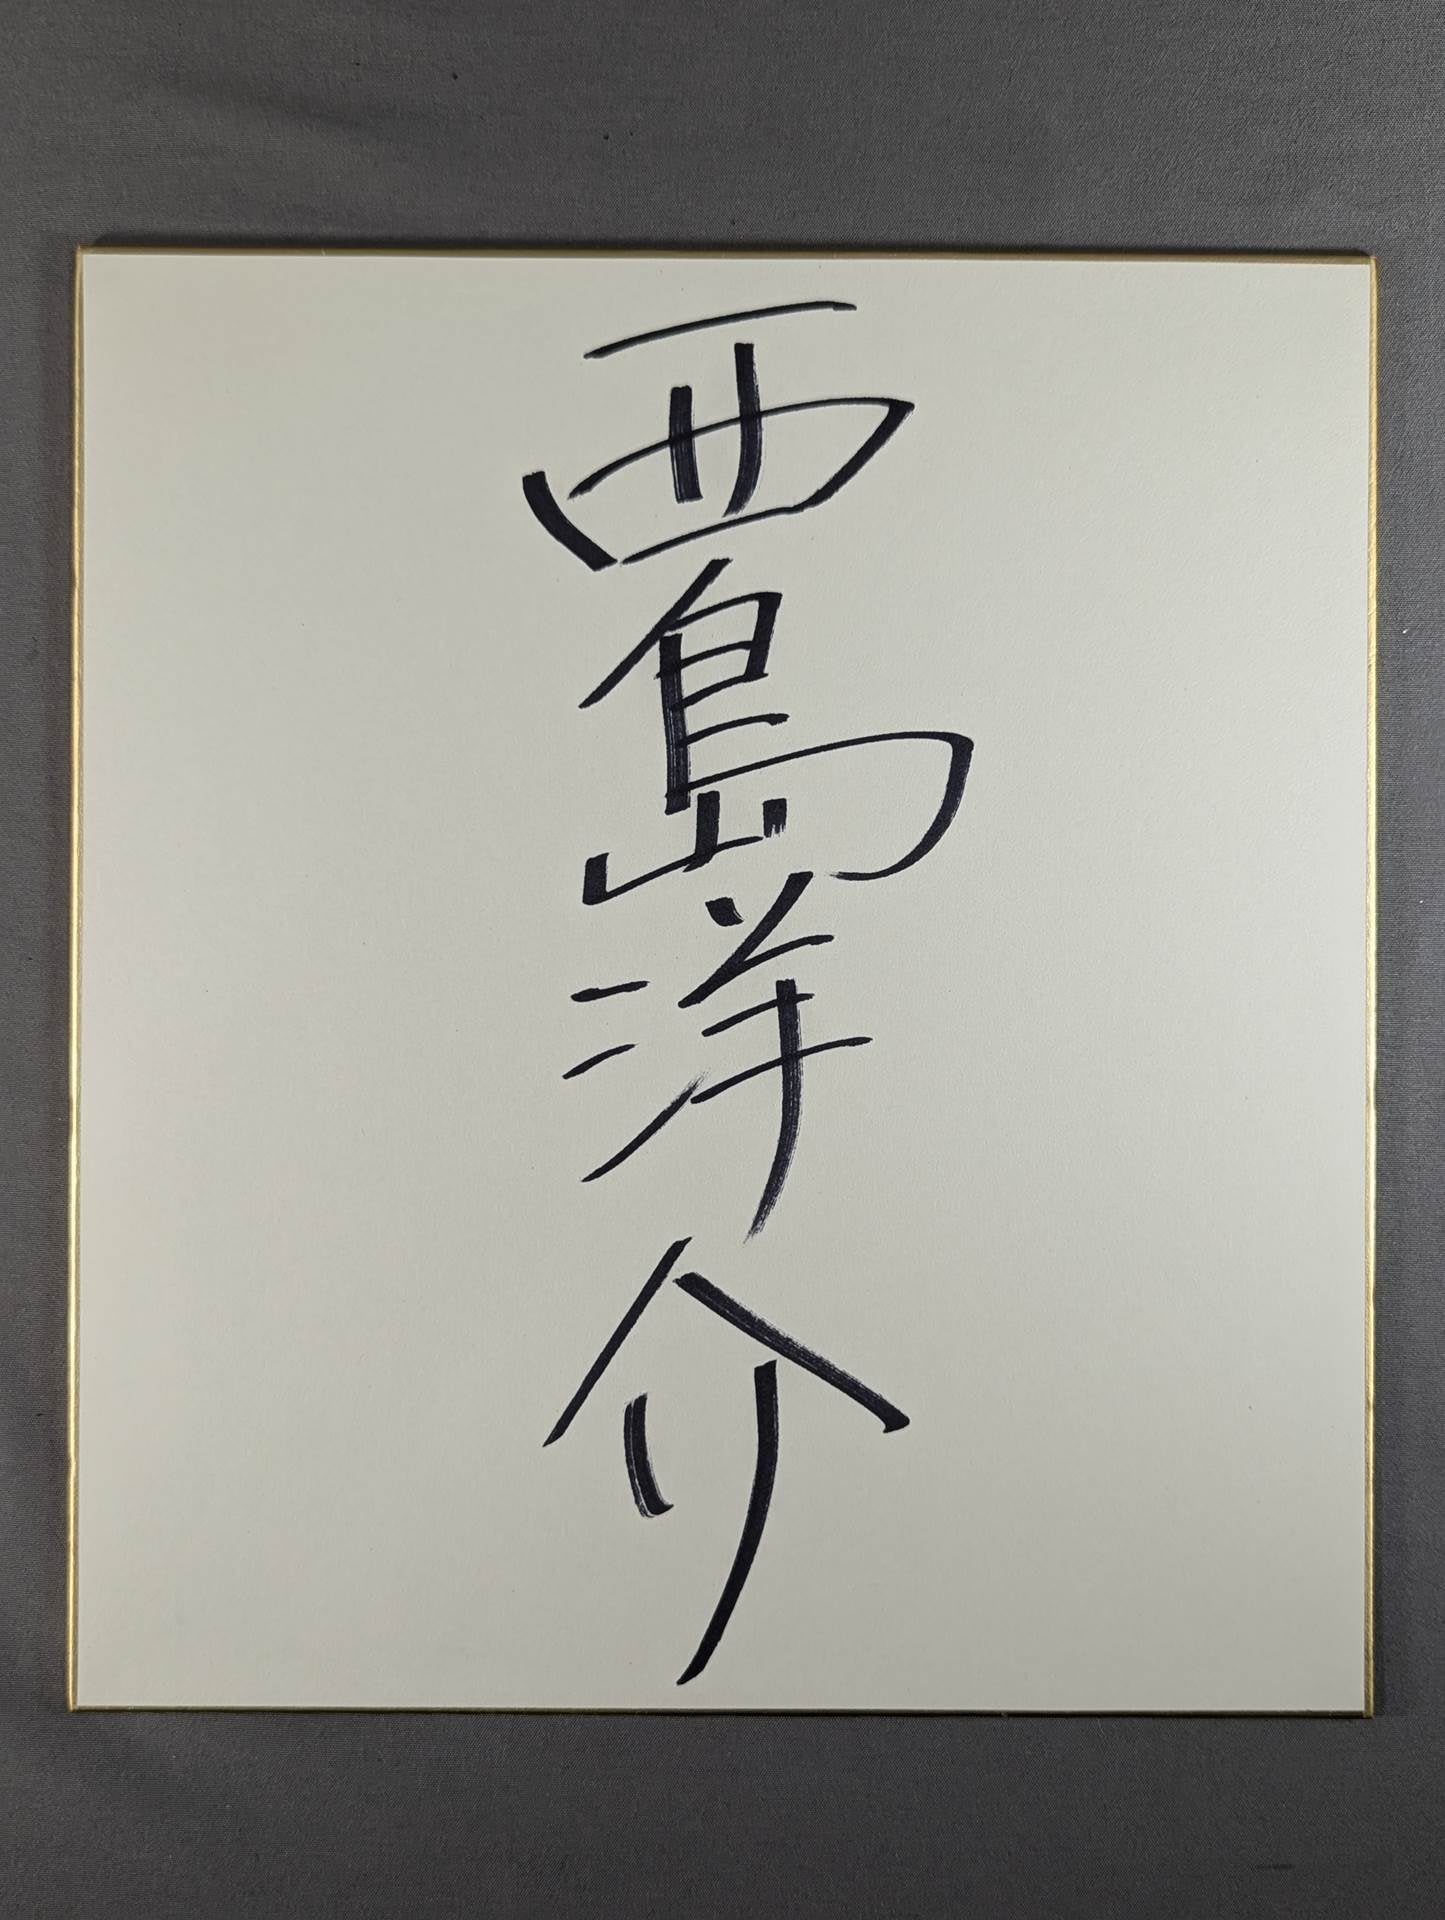 西島洋介